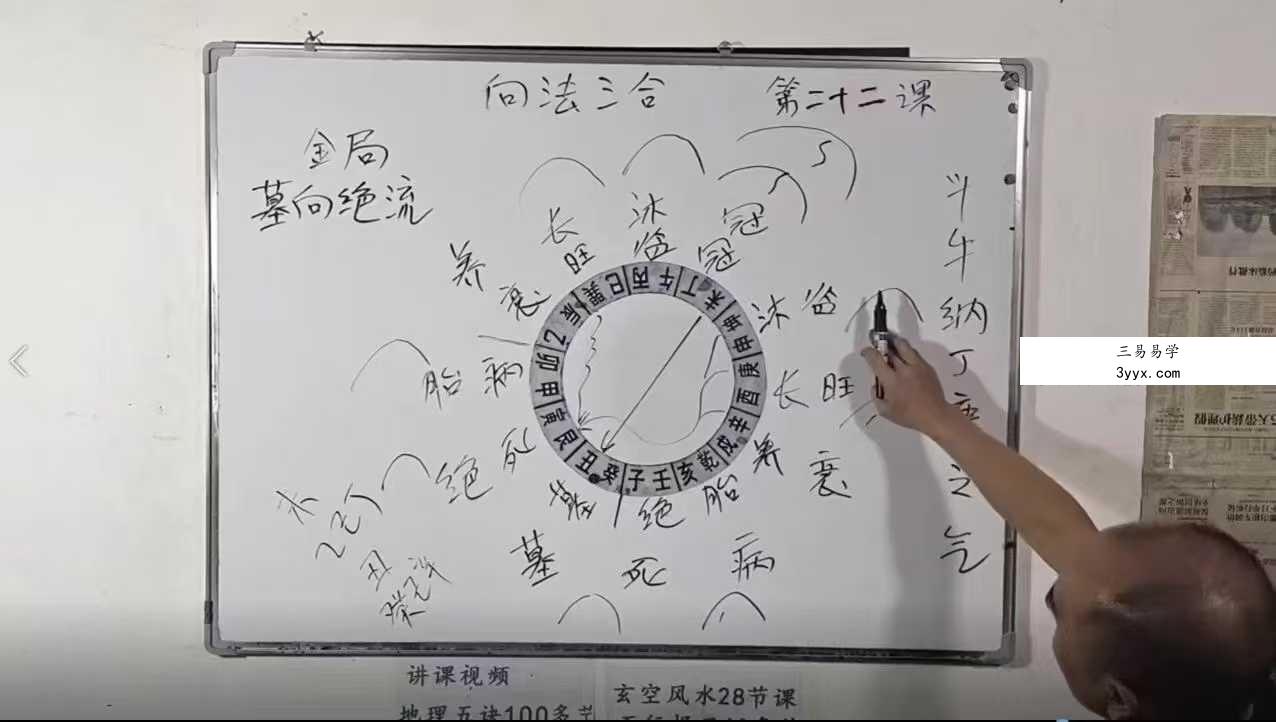 向法三合 第二十二课
金局
墓向绝流
斗
牛
纳
丁
庚
之
气
长 沐 冠
养 旺 临 冠
衰 沐 临
胎 病 长 旺
绝 死 养 衰
墓 绝 胎
墓 死 病
水
丑
巽 巳 丙 午 丁 未 坤 申 庚 酉 辛 戌 乾 亥 壬 子 癸 丑 艮 寅 甲 卯 乙 辰
三易易学
3yyx.com
讲课视频
地理五诀100多节
玄空风水28节课